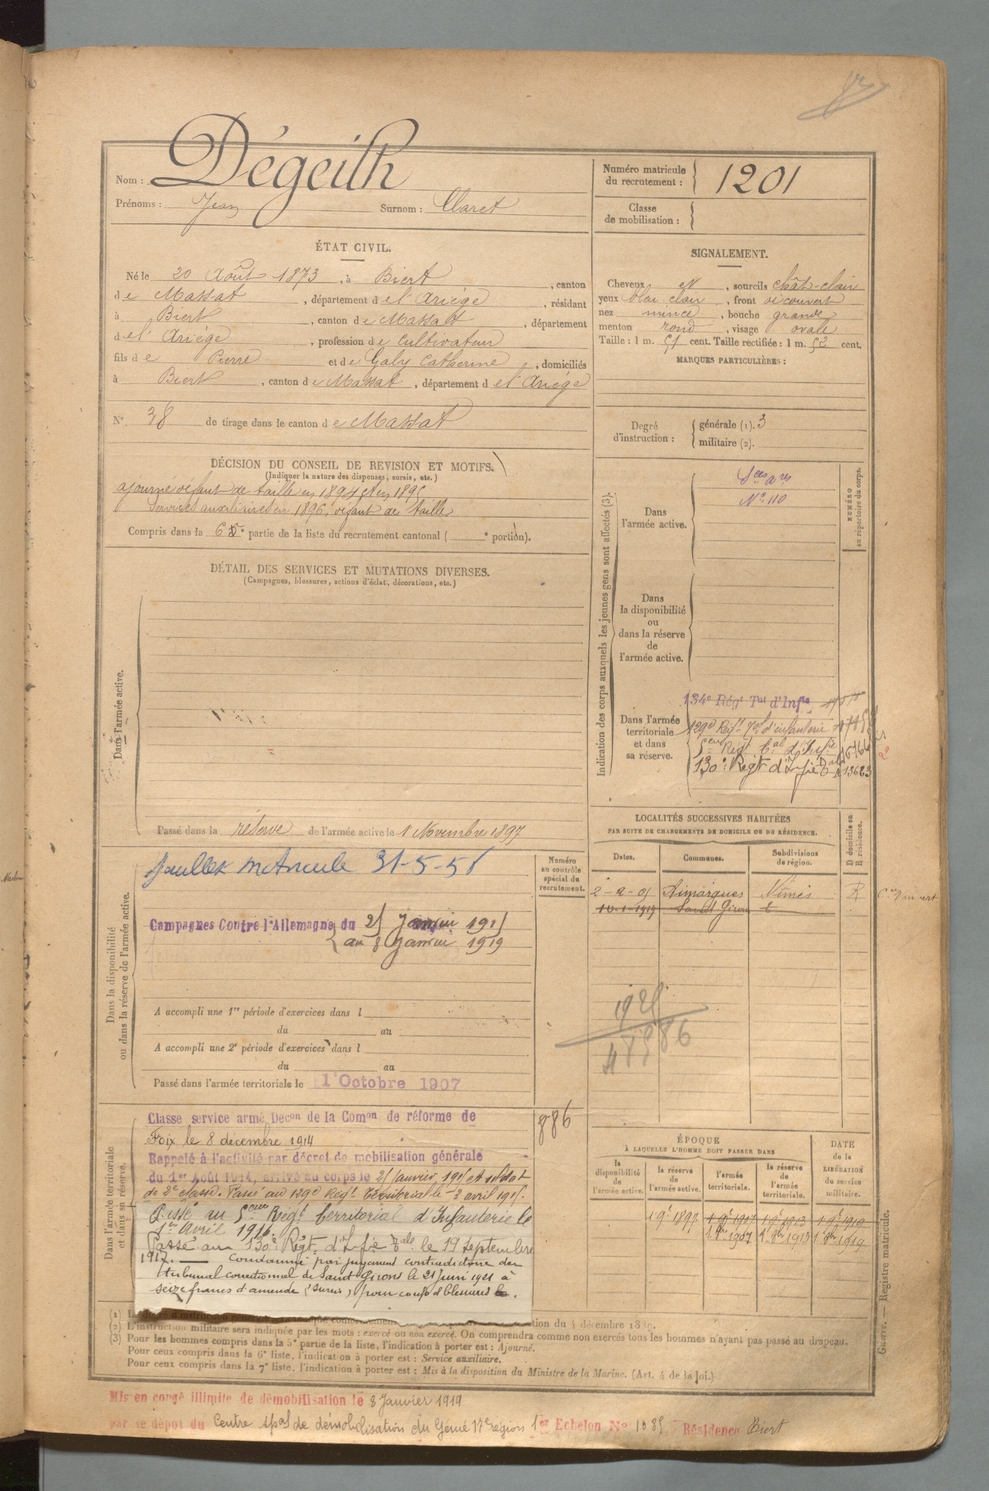 Nom : Dégeilh
Prénoms : Jean Surnom : Claret
Numéro matricule du recrutement : 1201
Classe de mobilisation :
ÉTAT CIVIL.
Né le 20 Août 1873, à Biert, canton
de Massat, département de l'Ariège, résidant
à Biert, canton de Massat, département
de l'Ariège, profession de cultivateur
fils de Pierre et de Galy Catherine, domiciliés
à Biert, canton de Massat, département de l'Ariège
N° 38 de tirage dans le canton de Massat
SIGNALEMENT.
Cheveux et, sourcils chât-clair
yeux bleu clair, front découvert
nez mince, bouche grande
menton rond, visage ovale
Taille : 1 m. 51 cent. Taille rectifiée : 1 m. 52 cent.
MARQUES PARTICULIÈRES :
Degré d'instruction : générale (1). 3
militaire (2).
DÉCISION DU CONSEIL DE REVISION ET MOTIFS.
(Indiquer la nature des dispenses, sursis, etc.)
ajourné défaut de taille en 1894 et en 1895
Services auxiliaires en 1896, défaut de taille
Compris dans la 6e partie de la liste du recrutement cantonal ( e portion).
DÉTAIL DES SERVICES ET MUTATIONS DIVERSES.
(Campagnes, blessures, actions d'éclat, décorations, etc.)
Dans l'armée active.
Passé dans la réserve de l'armée active le 1 Novembre 1897
Indication des corps auxquels les jeunes gens sont affectés (3).
Dans l'armée active.
N° 110
NUMÉRO au répertoire du corps.
Dans la disponibilité ou dans la réserve de l'armée active.
Dans l'armée territoriale et dans sa réserve.
134e Régt Tal d'Infie
129e Régt Tal d'infanterie
5eme Regt Tal d'Infie
130e Régt d'Infie Tale 13623
Dans la disponibilité ou dans la réserve de l'armée active.
Campagnes Contre l'Allemagne du 25 Janvier 1915
au 8 Janvier 1919
A accompli une 1re période d'exercices dans l
du au
A accompli une 2e période d'exercices dans l
du au
Passé dans l'armée territoriale le 1 Octobre 1907
Numéro au contrôle spécial du recrutement.
886
LOCALITÉS SUCCESSIVES HABITÉES
PAR SUITE DE CHANGEMENTS DE DOMICILE OU DE RÉSIDENCE.
Dates. Communes. Subdivisions de région. D domicile ou R résidence.
Aimargues Nîmes R
Saint Girons
Dans l'armée territoriale et dans sa réserve.
Classé service armé Decon de la Comon de réforme de
Foix le 8 décembre 1914
Rappelé à l'activité par décret de mobilisation générale
du 1er Août 1914, arrivé au corps le 25 janvier 1915 et soldat
de 2e classe. Passé au 129e Régt Territorial le 3 avril 1915.
Passé au 5eme Régt territorial d'Infanterie le
1er Avril 1916.
Passé au 130e Régt d'Infie Tale le 19 Septembre
1917. — Condamné par jugement contradictoire du
tribunal correctionnel de Saint Girons le 21 juin 1921 à
seize francs d'amende (sursis) pour coups et blessures
ÉPOQUE
À LAQUELLE L'HOMME DOIT PASSER DANS
la disponibilité de l'armée active. la réserve de l'armée active. l'armée territoriale. la réserve de l'armée territoriale.
DATE de la LIBÉRATION du service militaire.
du 4 décembre 1889.
(2) L'instruction militaire sera indiquée par les mots : exercé ou non exercé. On comprendra comme non exercés tous les hommes n'ayant pas passé au drapeau.
(3) Pour les hommes compris dans la 5e partie de la liste, l'indication à porter est : Ajourné.
Pour ceux compris dans la 6e liste, l'indication à porter est : Service auxiliaire.
Pour ceux compris dans la 7e liste, l'indication à porter est : Mis à la disposition du Ministre de la Marine. (Art. 4 de la loi.)
Guerre. Registre matricule.
Mis en congé illimité de démobilisation le 8 Janvier 1919
par le dépôt du Centre spal de démobilisation du Génie 17e région 1er Echelon N° 1085 Résidence Biert